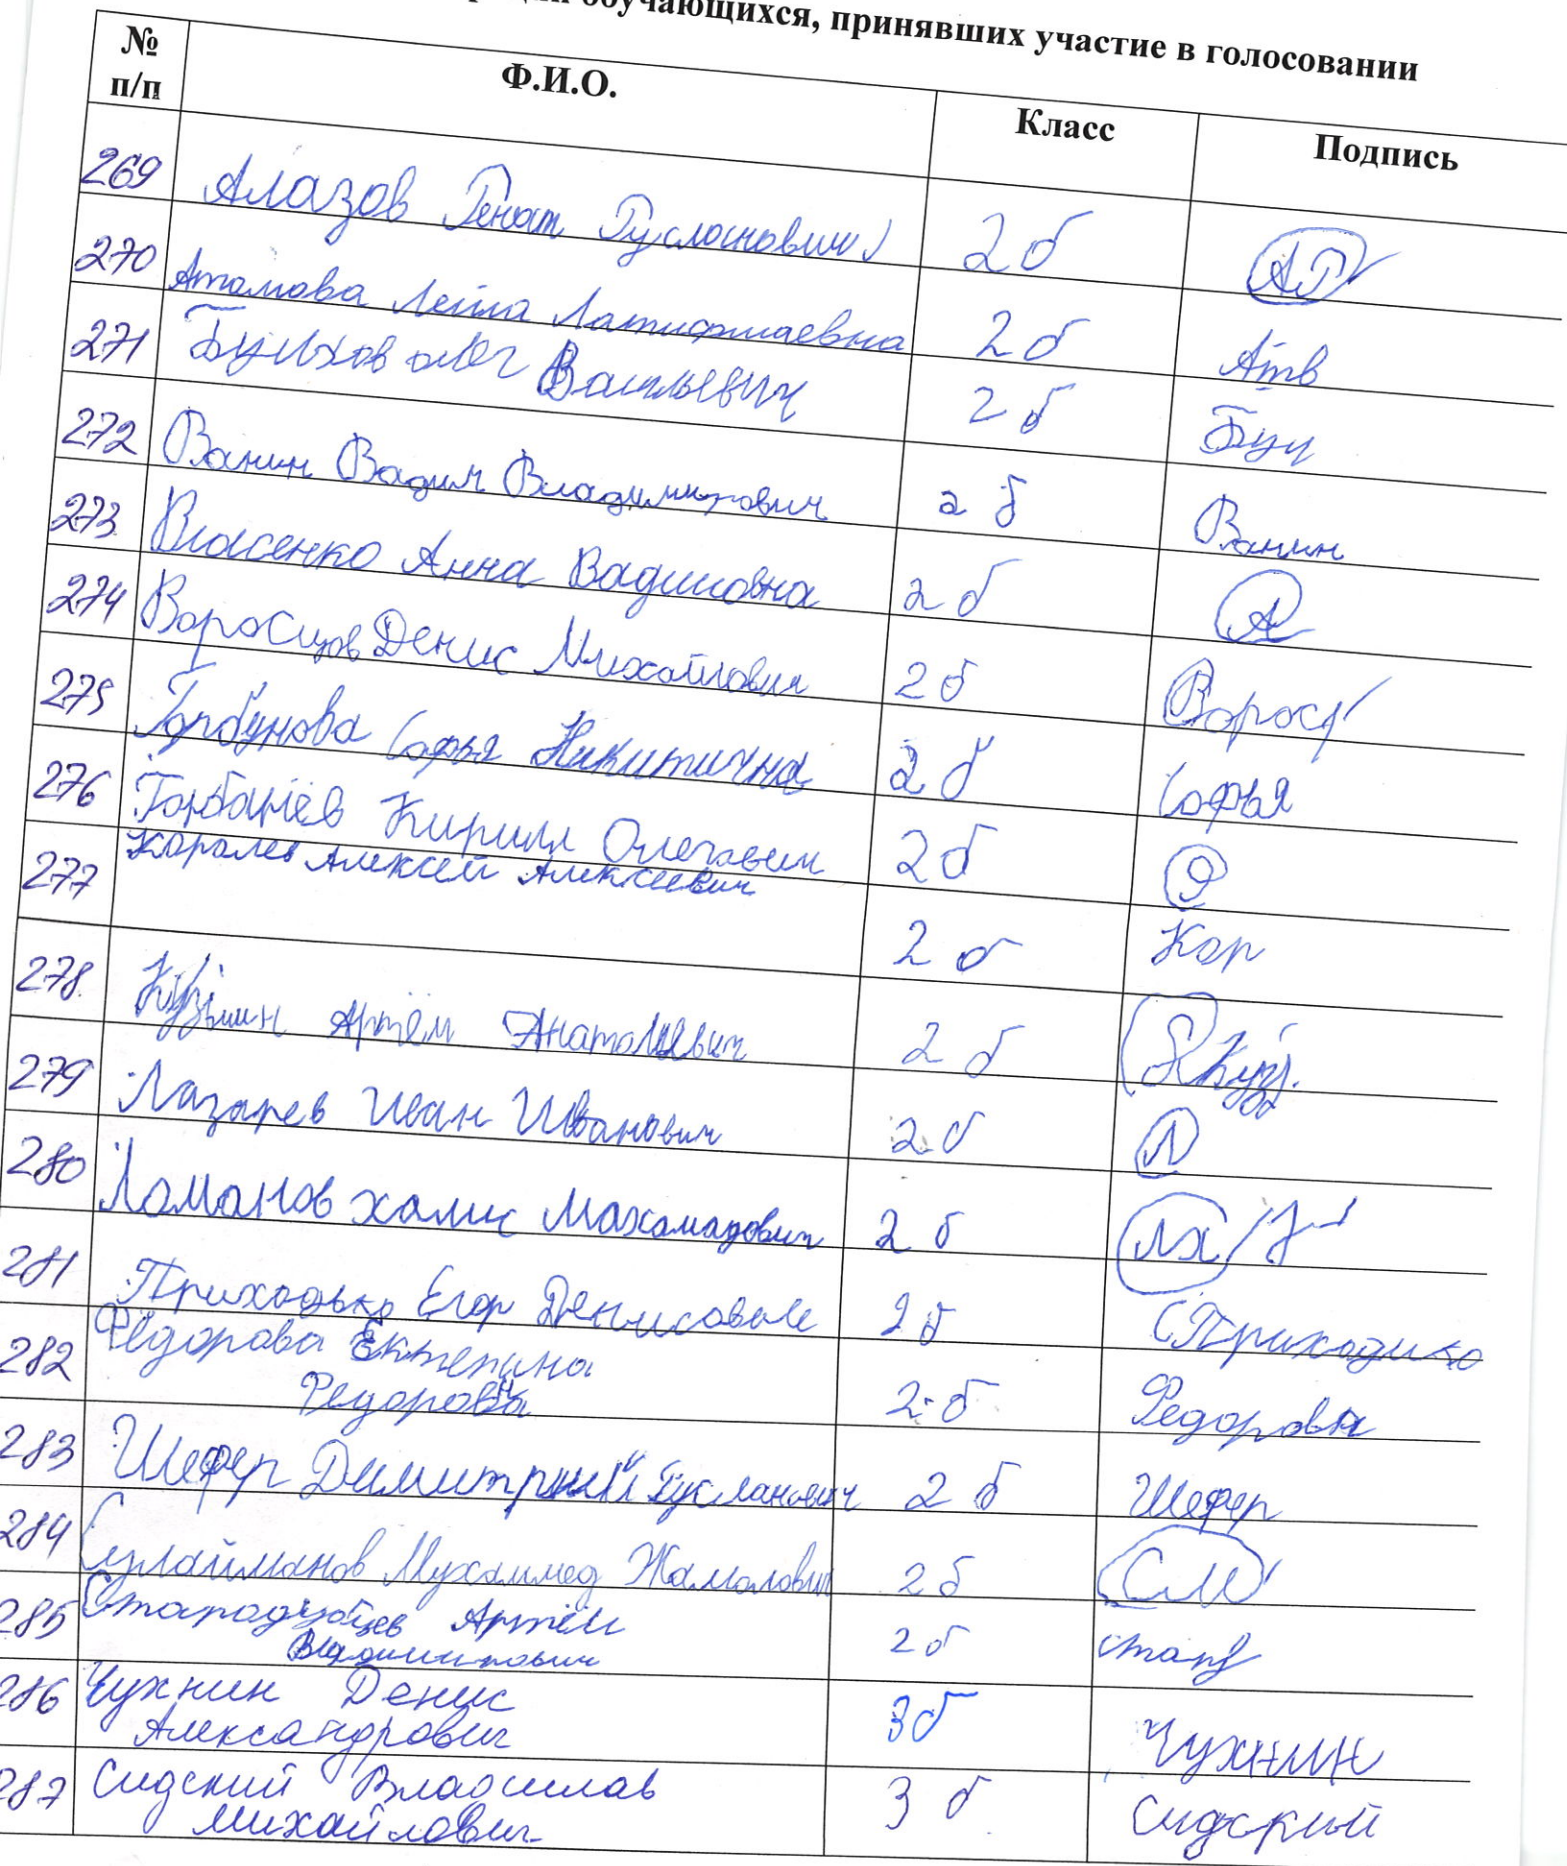 обучающихся, принявших участие в голосовании
№ п/п Ф.И.О. Класс Подпись
269 Алазов Ренат Руслонович 2б АР
270 Атамова Лейла 2б Атв
271 Булхов олег Васильевич 2б Бул
272 Ванин Вадим Владимирович 2 б Ванин
273 Власенко Анна Вадимовна 2 б А
274 Воросцов Денис Михайлович 2б Ворос
275 Горбунова Софья Никитична 2 б Софья
276 Горбанёв Кирилл Олегович 2б
277 Королев Алексей Алексеевич 2 б Кор
278 Кузьмин Артём Анатолиевич 2 б Куз.
279 Лазарев Иван Иванович 2б Л
280 Ломанов халис Махамадович 2 б ЛХ
281 Приходько Егор Денисович 2б Приходько
282 Фёдорова Екterина 2б Федорова
Федоровна
283 Шефер Димитрий Русланович 2 б Шефер
284 Сулайманов Мухаммед Жамалович 2б СМ
285 Стародубцев Артём 2б стар
Владимирович
286 Чухнин Денис 3б Чухнин
Александрович
287 Сидский Владислав 3 б Сидский
михайлович